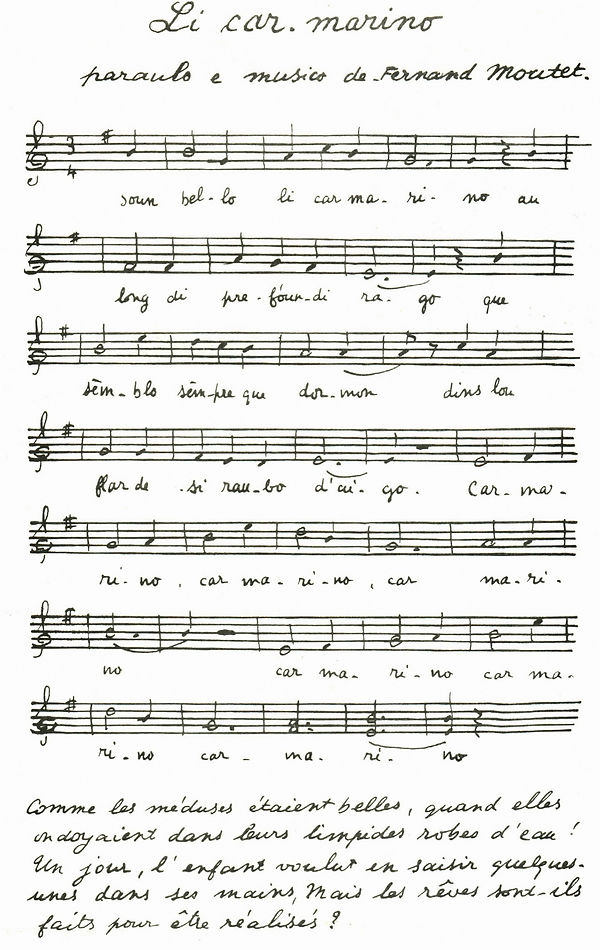 Li car-marino
paraulo e musico de Fernand Moutet.
3
4
soun bel-lo li car ma-ri-no au
long di pre-foun-di ra-go que
sèm-blo sèm-pre que dor-mon dins lou
flar de si rau-bo d'ai-go. Car-ma-
ri-no, car ma-ri-no, car ma-ri-
no car ma-ri-no car ma-
ri-no car-ma-ri-no
Comme les méduses étaient belles, quand elles
ondoyaient dans leurs limpides robes d'eau !
Un jour, l'enfant voulut en saisir quelques-
unes dans ses mains, Mais les rêves sont-ils
faits pour être réalisés ?